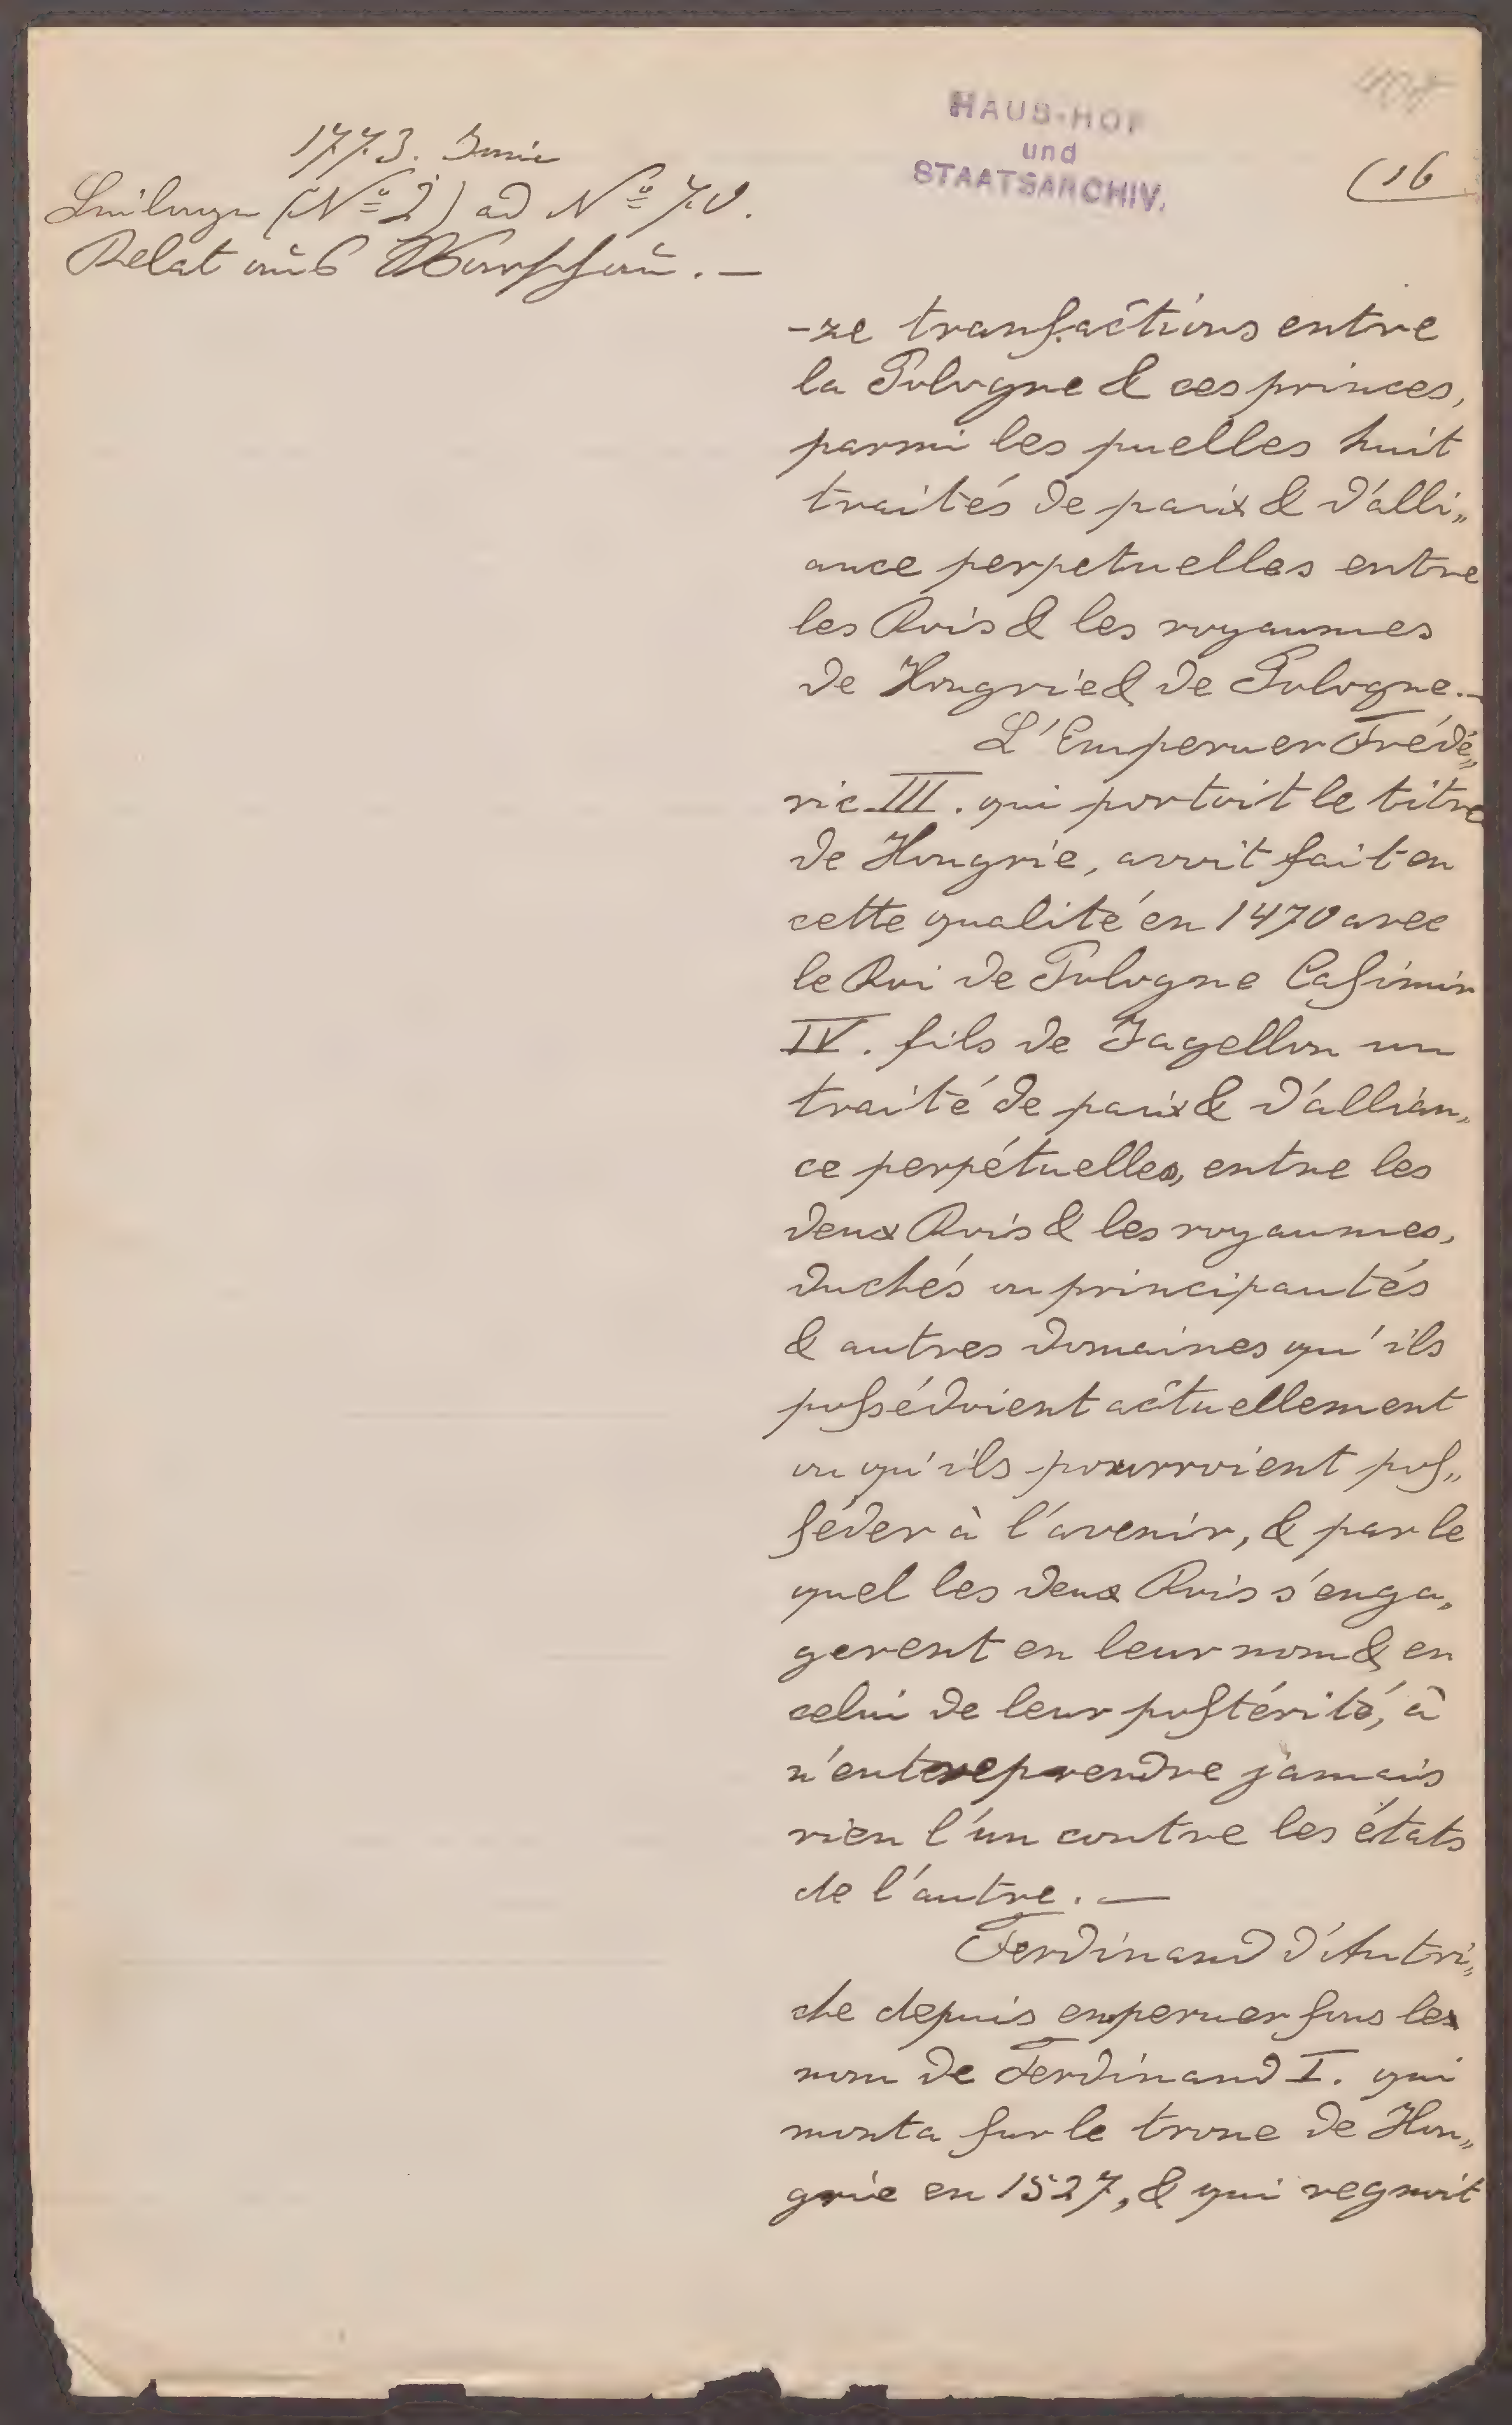 1773. Junii
Beilage (Nº 2) ad Nº 70.
Relat aus Warschau. —
HAUS-HOF
und
STAATSARCHIV.
(16
-ze transactions entre
la Pologne & ces princes,
parmi les quelles huit
traités de paix & d'alli„
ance perpetuelles entre
les Rois & les royaumes
de Hongrie & de Pologne. —
L'Emperuer Frédé„
ric III. qui portoit le titre
de Hongrie, avoit fait en
cette qualité en 1470 avec
le Roi de Pologne Casimir
IV. fils de Jagellon un
traité de paix & d'allian„
ce perpétuelles, entre les
deux Rois & les royaumes,
duchés ou principautés
& autres domaines qu'ils
possédoient actuellement
ou qu'ils pourroient pos„
séder à l'avenir, & par le
quel les deux Rois s'enga„
gerent en leur nom & en
celui de leur postérité, à
n'entreprendre jamais
rien l'un contre les états
de l'autre. —
Ferdinand d'Autri„
che depuis emperuer sous le
nom de Ferdinand I. qui
monta sur le trone de Hon„
grie en 1527, & qui regnoit